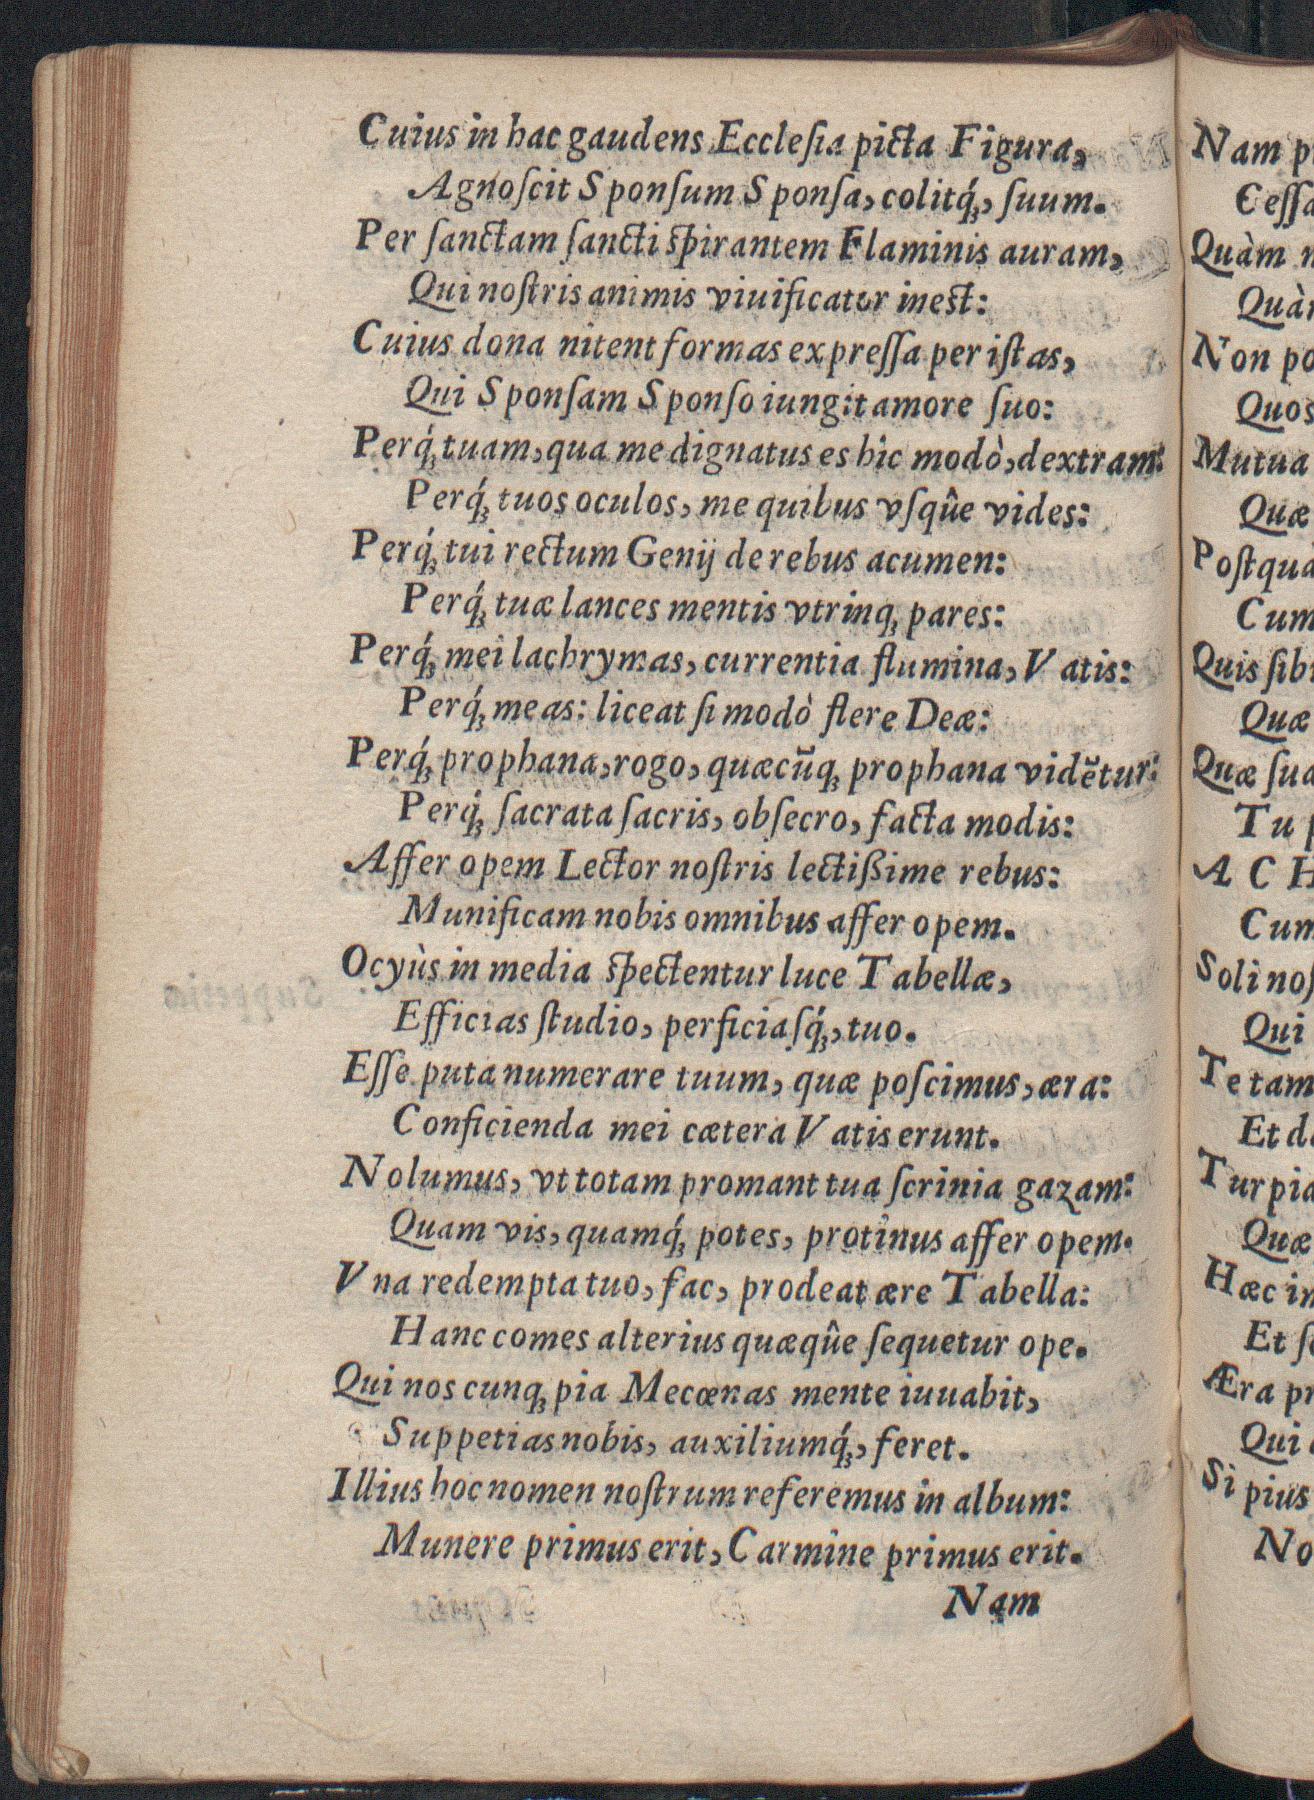 Cuius in hac gaudens Ecclesia picta Figura,
Agnoſcit Sponſum Sponſa, colitq́ꝫ, ſuum.
Per ſanctam ſancti ſpirantem Flaminis auram,
Qui noſtris animis viuificator ineſt:
Cuius dona nitent formas expreſſa per iſtas,
Qui Sponſam Sponſo iungit amore ſuo:
Perq́ꝫ tuam, qua me dignatus es hîc modò, dextram:
Perq́ꝫ tuos oculos, me quibus vſqûe vides:
Perq́ꝫ tui rectum Genij de rebus acumen:
Perq́ꝫ tuæ lances mentis vtrinqꝫ pares:
Perq́ꝫ mei lachrymas, currentia flumina, Vatis:
Perq́ꝫ meas: liceat ſi modò flere Deæ:
Perq́ꝫ prophana, rogo, quæcũqꝫ prophana vidẽtur:
Perq́ꝫ ſacrata ſacris, obſecro, facta modis:
Affer opem Lector noſtris lectißime rebus:
Munificam nobis omnibus affer opem.
Ocyùs in media ſpectentur luce Tabellæ,
Efficias ſtudio, perficiaſq́ꝫ, tuo.
Eſſe puta numerare tuum, quæ poſcimus, æra:
Conficienda mei cætera Vatis erunt.
Nolumus, vt totam promant tua ſcrinia gazam:
Quam vis, quamq́ꝫ potes, protinus affer opem.
Vna redempta tuo, fac, prodeat ære Tabella:
Hanc comes alterius quæqûe ſequetur ope.
Qui nos cunqꝫ pia Mecœnas mente iuuabit,
Suppetias nobis, auxiliumq́ꝫ, feret.
Illius hoc nomen noſtrum referemus in album:
Munere primus erit, Carmine primus erit.
Nam
Nam
Quàm
Non
Quos
Mutua
Quæ
Cum
Quis
Quæ
Quæ
Tu
Soli
Qui
Te tam
Et
Quæ
Hæc
Et
Æra
Qui
Si pius